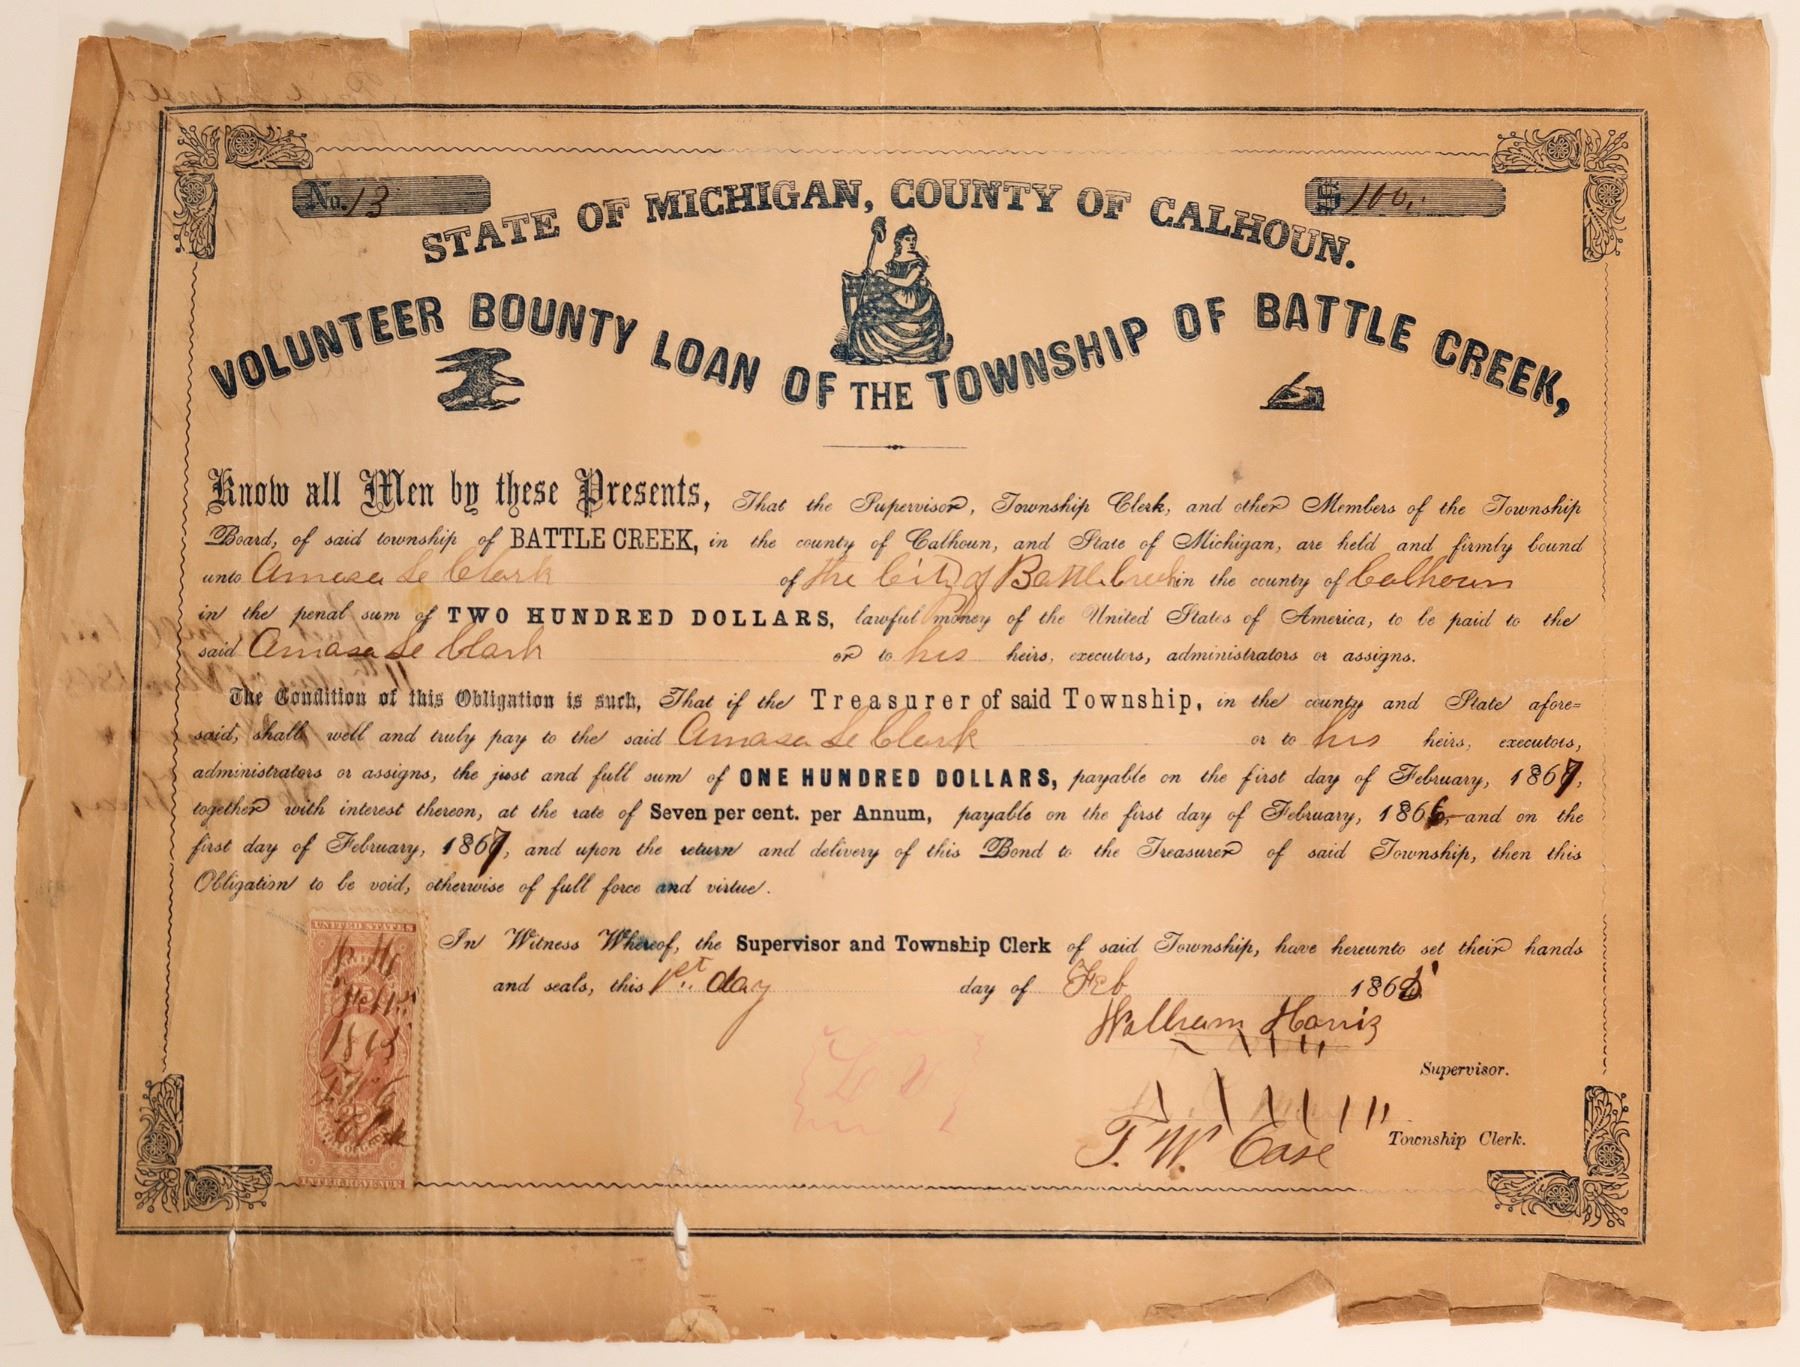 No. 13
$ 100.
STATE OF MICHIGAN, COUNTY OF CALHOUN.
VOLUNTEER BOUNTY LOAN OF THE TOWNSHIP OF BATTLE CREEK,
Know all Men by these Presents, That the Supervisor, Township Clerk, and other Members of the Township
Board, of said township of BATTLE CREEK, in the county of Calhoun, and State of Michigan, are held and firmly bound
unto Amasa Le Clark of the City of Battle Creek in the county of Calhoun
in the penal sum of TWO HUNDRED DOLLARS, lawful money of the United States of America, to be paid to the
said Amasa Le Clark or to his heirs, executors, administrators or assigns.
The Condition of this Obligation is such, That if the Treasurer of said Township, in the county and State afore=
said, shall well and truly pay to the said Amasa Le Clark or to his heirs, executors,
administrators or assigns, the just and full sum of ONE HUNDRED DOLLARS, payable on the first day of February, 1867,
together with interest thereon, at the rate of Seven per cent. per Annum, payable on the first day of February, 1866, and on the
first day of February, 1867, and upon the return and delivery of this Bond to the Treasurer of said Township, then this
Obligation to be void, otherwise of full force and virtue.
In Witness Whereof, the Supervisor and Township Clerk of said Township, have hereunto set their hands
and seals, this 1st. day day of Feb 1865
William Harris
Supervisor.
T. W. Case
Township Clerk.
UNITED STATES
Feb 1st
1865
T. W. C
Clerk
INTER. REVENUE